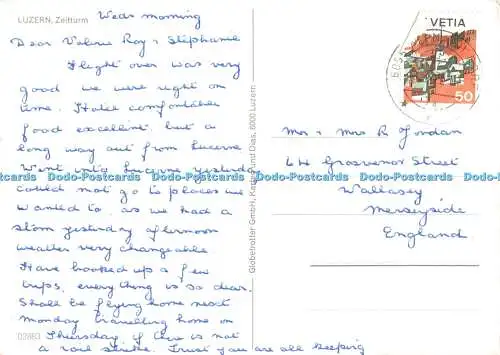 LUZERN, Zeitturm
Weds morning
Dear Valerie Roy & Stephanie
Flight over was very
good we were right on
time. Hotel comfortable
food excellent, but a
long way out from Lucerne
Went into Lucerne yesterday
could not go to places we
wanted to, as we had a
storm yesterday afternoon
weather very changeable
Have booked up a few
trips, everything is so dear.
Shall be flying home next
Monday travelling home on
Thursday, if there is not
a rail strike. Trust you are all keeping
Globetrotter GmbH, Karten und Dias, 6000 Luzern
VETIA
50
Mr & Mrs R Jordan
Grosvenor Street
Wallasey
Merseyside
England
Dodo-Postcards Dodo-Postcards Dodo-Postcards Dodo-Postcards Dodo-Postcards